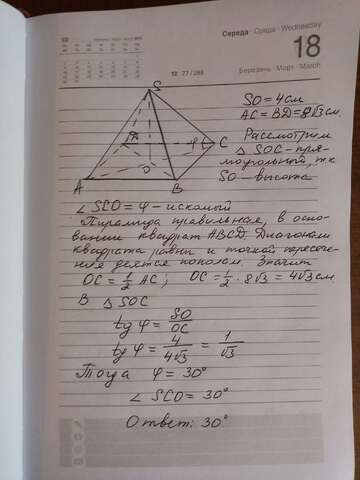 Середа · Среда · Wednesday
18
12 77 / 288
Березень · Март · March
S
SO = 4 см
AC = BD = 8√3 см
Рассмотрим
△ SOC - пря-
моугольный, т.к
SO - высота
φ
C
O
A
B
∠ SCO = φ - искомый
Пирамида правильная, в осно-
вании квадрат ABCD. Диагонали
квадрата равны и точкой пересече-
ния делятся пополам. Значит
OC = 1/2 AC; OC = 1/2 · 8√3 = 4√3 см.
В △ SOC
tg φ = SO/OC
tg φ = 4/4√3 = 1/√3
Тогда φ = 30°
∠ SCO = 30°
Ответ: 30°